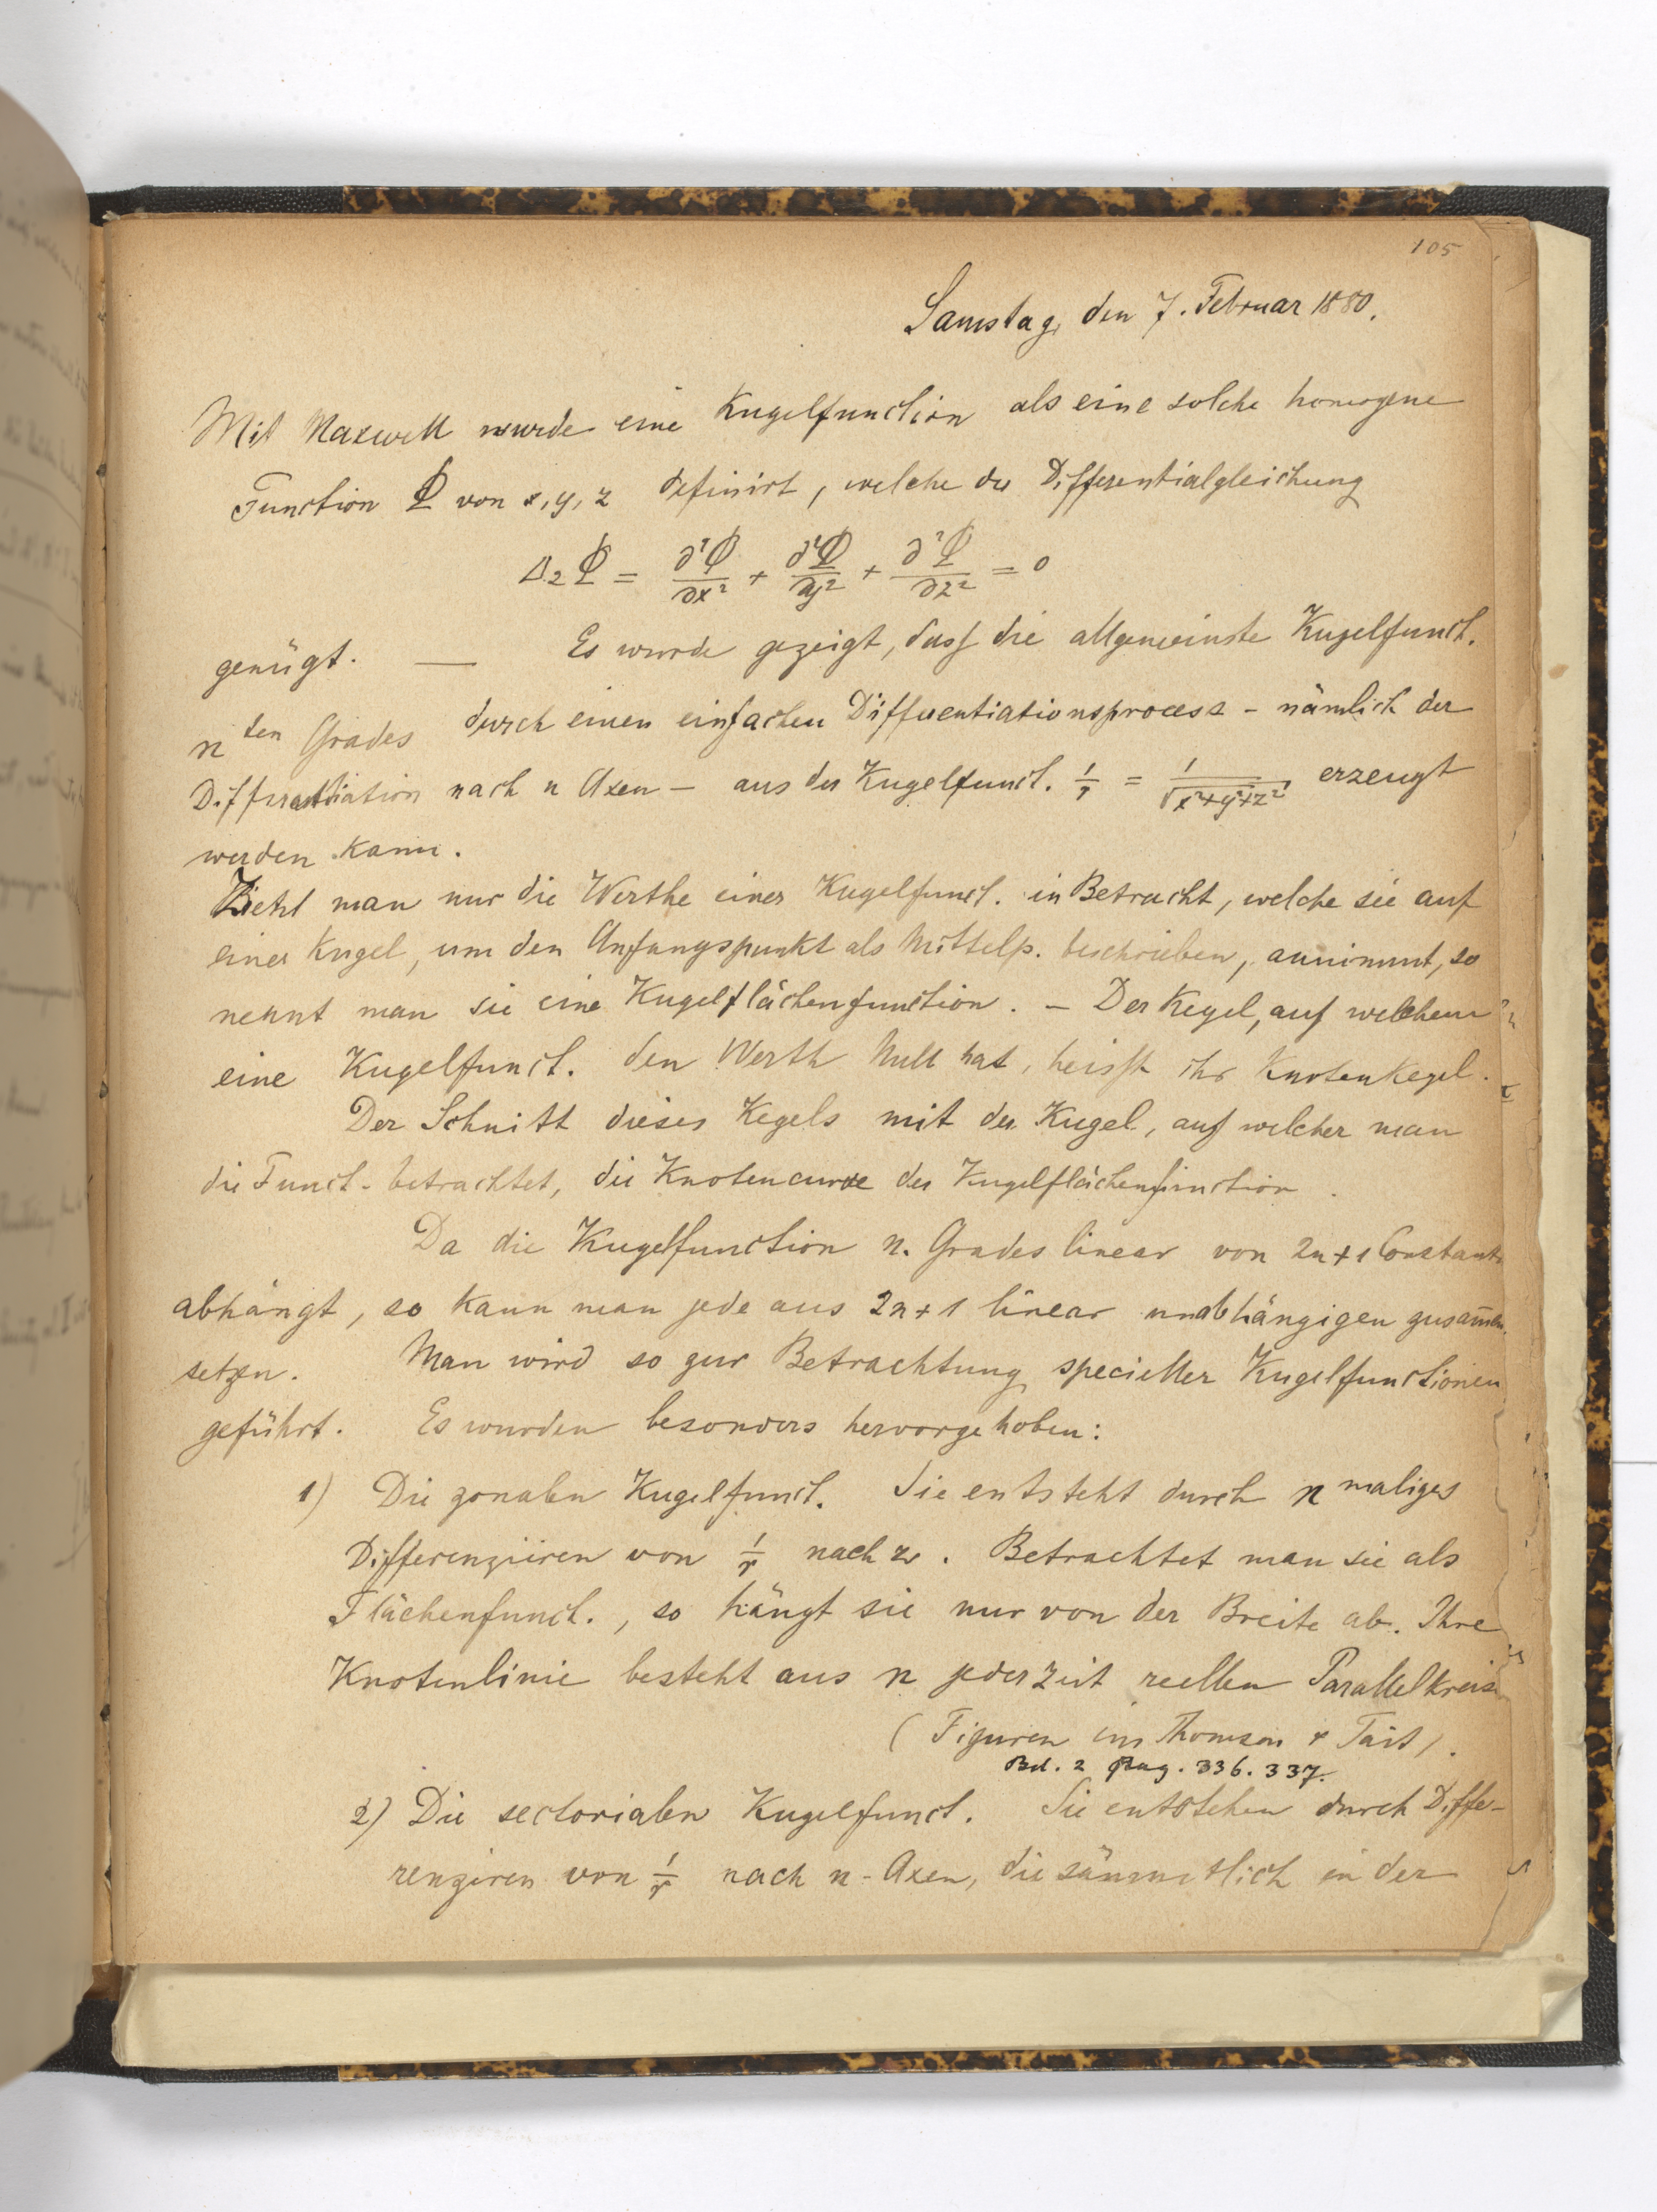 105
Samstag, den 7. Februar 1880.
Mit Maxwell wurde eine Kugelfunction als eine solche homogene
Function Φ von x, y, z definirt, welche der Differentialgleichung
Δ₂Φ = ∂²Φ/∂x² + ∂²Φ/∂y² + ∂²Φ/∂z² = 0
genügt. — Es wurde gezeigt, dass die allgemeinste Kugelfunct.
n ten Grades durch einen einfachen Differentiationsprocess - nämlich der
Differentiation nach n Axen — aus der Kugelfunct. 1/r = 1/√(x²+y²+z²) erzeugt
werden kann.
Zieht man nur die Werthe einer Kugelfunct. in Betracht, welche sie auf
einer Kugel, um den Anfangspunkt als Mittelp. beschrieben, annimmt, so
nennt man sie eine Kugelflächenfunction. — Der Kegel, auf welchem
eine Kugelfunct. den Werth Null hat, heisst ihr Knotenkegel.
Der Schnitt dieses Kegels mit der Kugel, auf welcher man
die Funct. betrachtet, die Knotencurve der Kugelflächenfunction.
Da die Kugelfunction n. Grades linear von 2n+1 Constant
abhängt, so kann man jede aus 2n+1 linear unabhängigen zusam̄en
setzen. Man wird so zur Betrachtung specieller Kugelfunctionen
geführt. Es wurden besonders hervorgehoben:
1) Die zonalen Kugelfunct. Sie entsteht durch n maliges
Differenziiren von 1/r nach z. Betrachtet man sie als
Flächenfunct., so hängt sie nur von der Breite ab. Ihre
Knotenlinie besteht aus n jederzeit reellen Parallelkreise
(Figuren im Thomson & Tait).
Bd. 2 Pag. 336. 337.
2) Die sectorialen Kugelfunct. Sie entstehen durch Diffe-
renziren von 1/r nach n-Axen, die sämmtlich in der